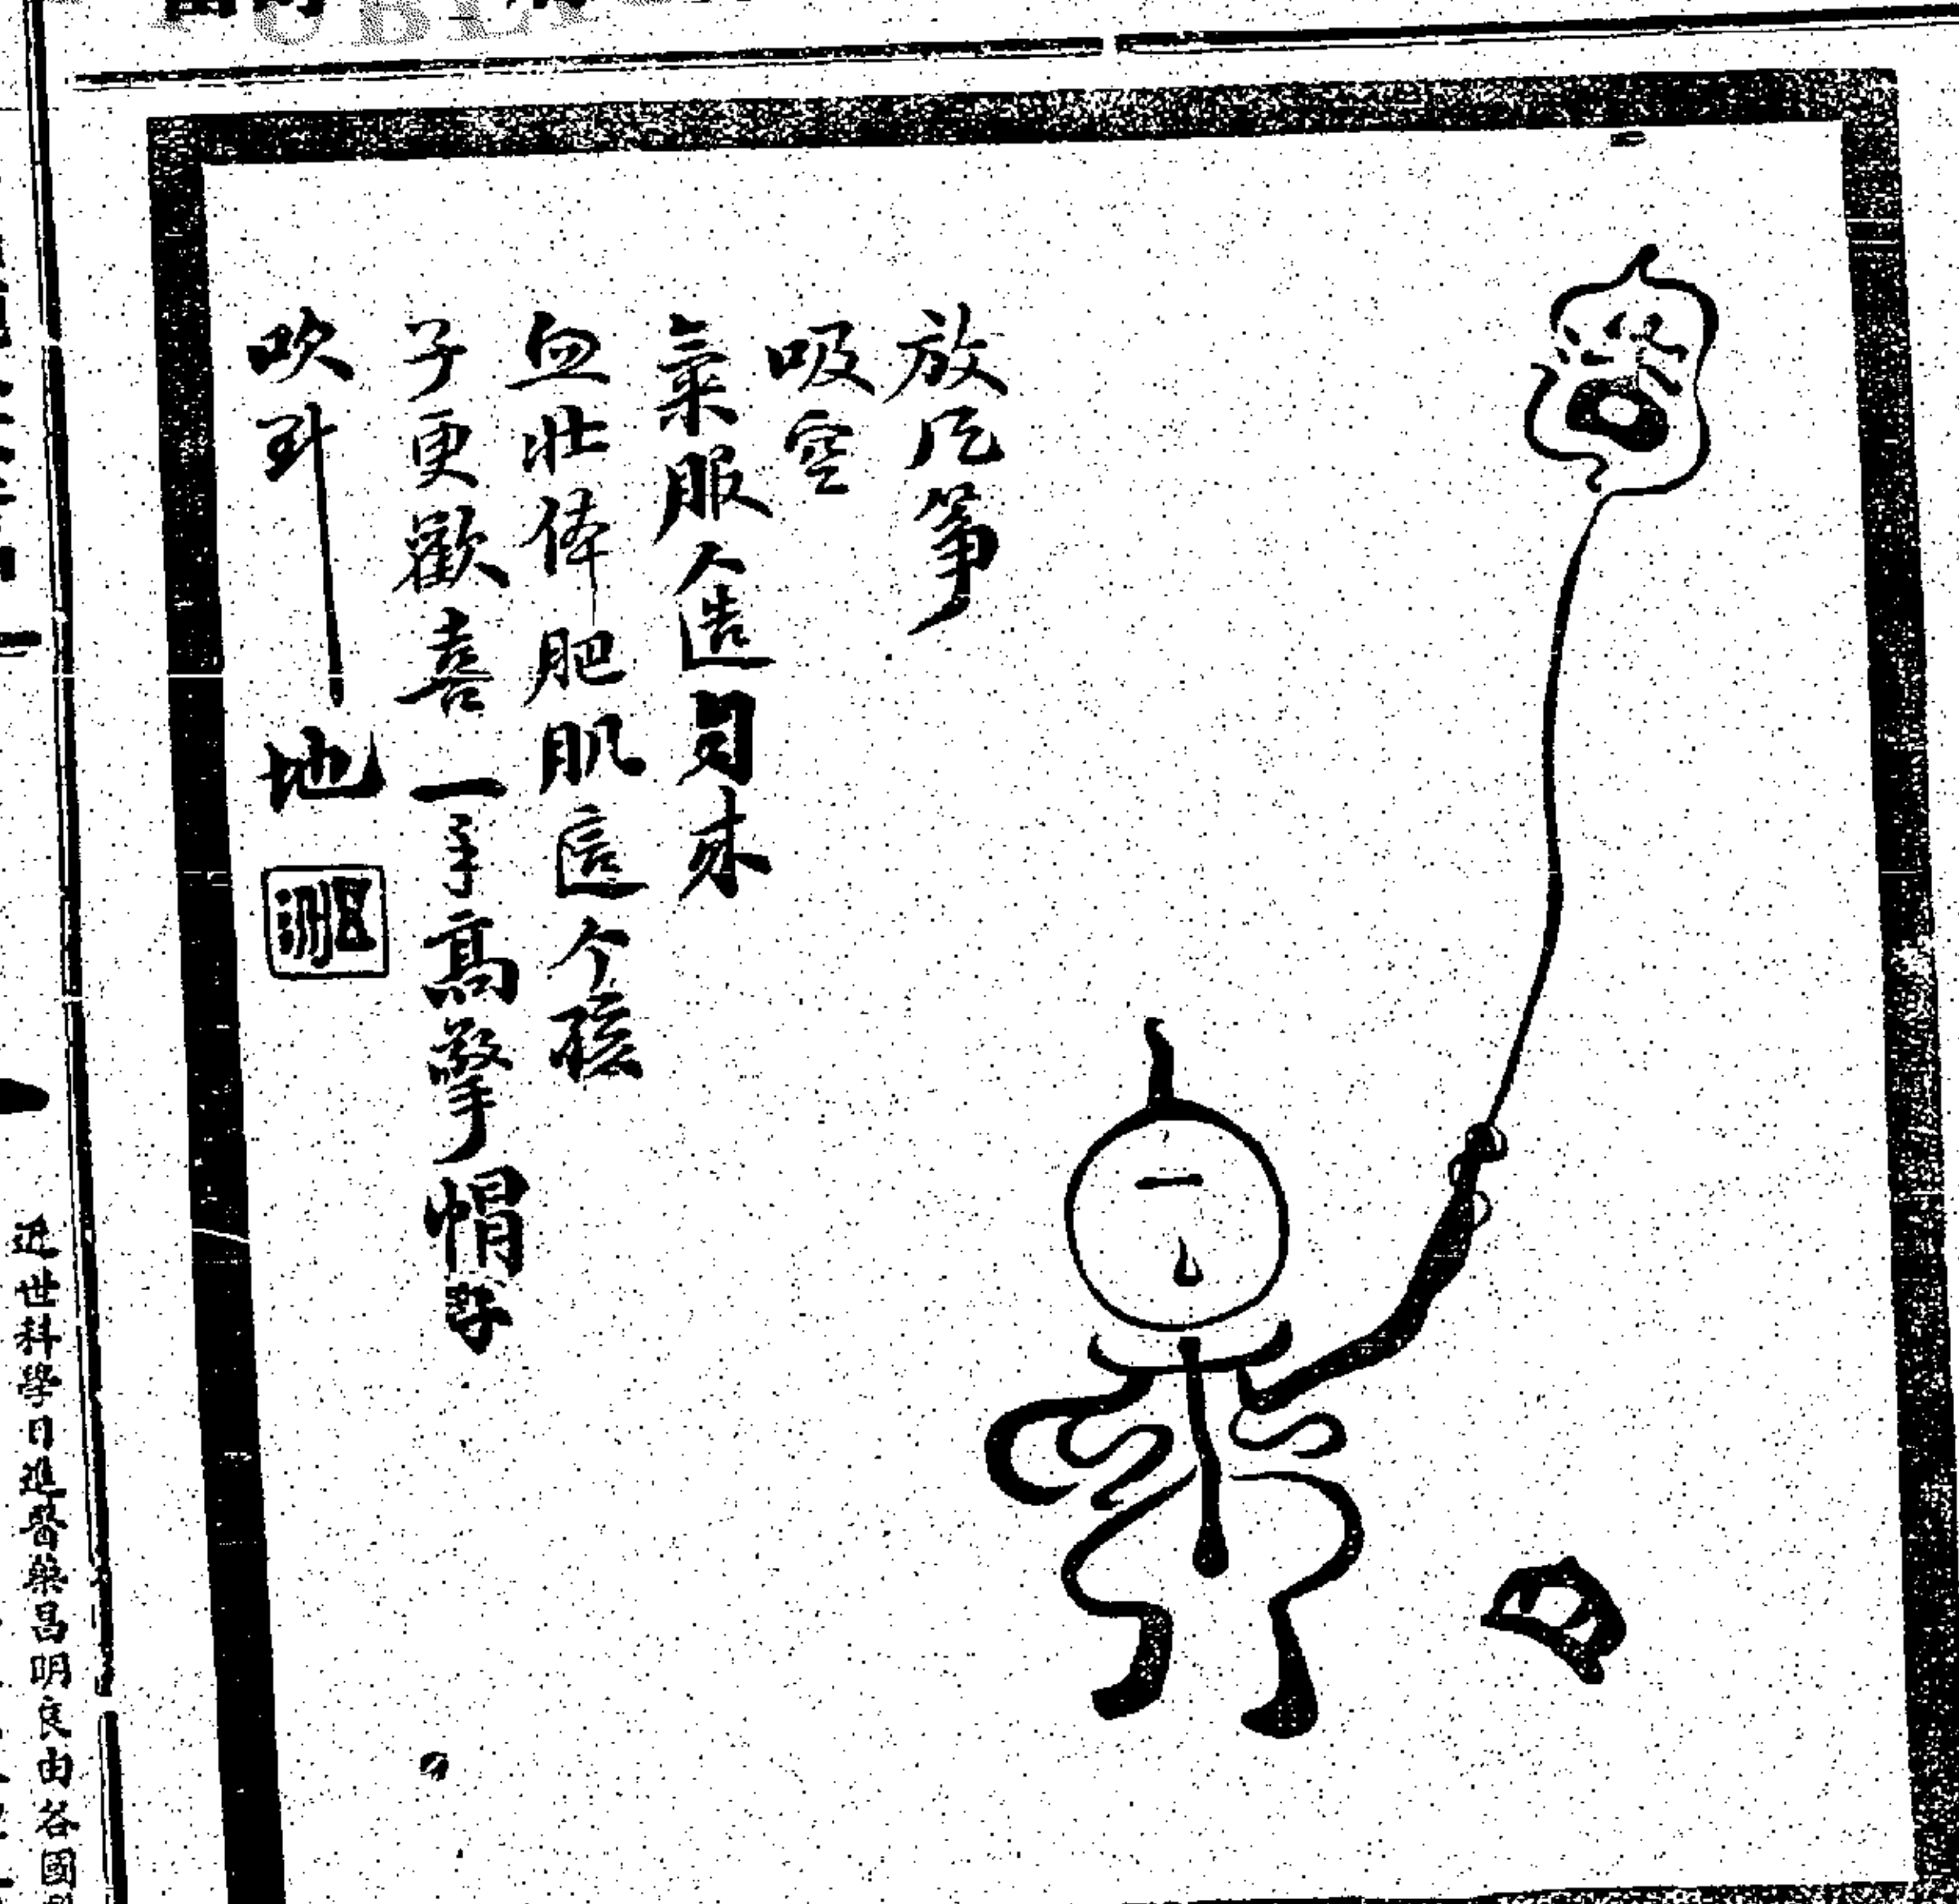 放风筝
吸空
氣服人造自来
血壮体肥肌這个孩
子更歡喜一手高擎帽子
吹到地
近世科學日進醫藥昌明良由各國